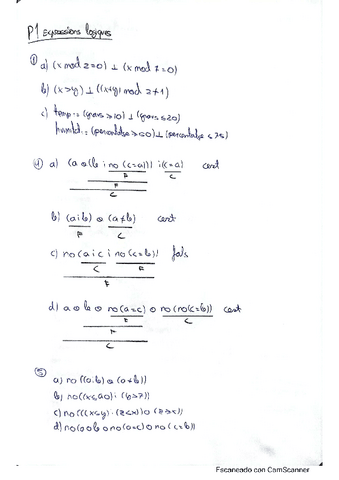 P1 Expressions lògiques
① a) (x mod 2=0) ⊥ (x mod 7=0)
b) (x>y) ⊥ ((x+y) mod 2≠1)
c) temp.= (graus≥10) ⊥ (graus≤20)
humitat.= (percentatge ≥60) ⊥ (percentatge ≤75)
④ a) (a o (b i no (c=a))) i (c=a) cert
F C
F
C
b) (a i b) o (a≠b) cert
F C
c) no (a i c i no (c=b)) fals
C F
d) a o b o no (a=c) o no (no (c=b)) cert
F C
F
C
⑤
a) no ((a i b) o (a≠b))
b) no ((x≤a o) i (y>7))
c) no (((x<y) · (z<x)) o (z>x))
d) no (o o b o no (a=c) o no (c=b))
Escaneado con CamScanner